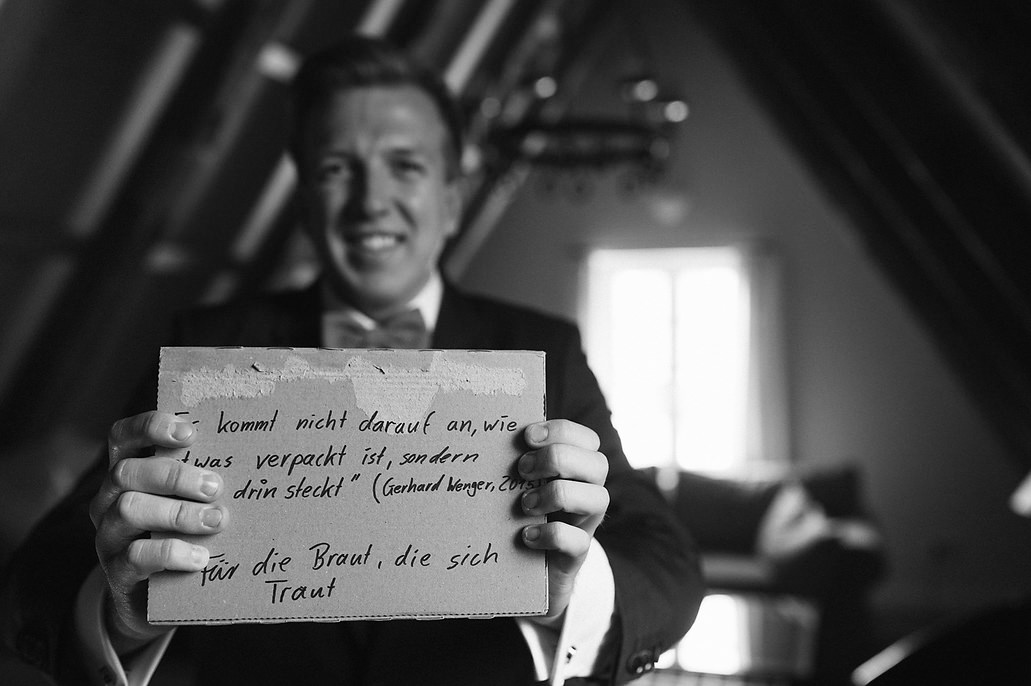 kommt nicht darauf an, wie
verpackt ist, sondern
drin steckt" (Gerhard Wenger, 2015)
Für die Braut, die sich
Traut